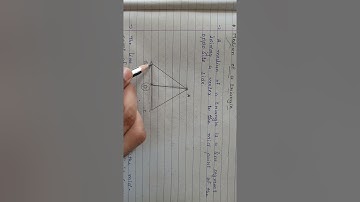 * Median of a Triangle
→ A median of a triangle is a line segment
joining a vertex to the mid point of the
opposite side.
A
D
the line
the mid-